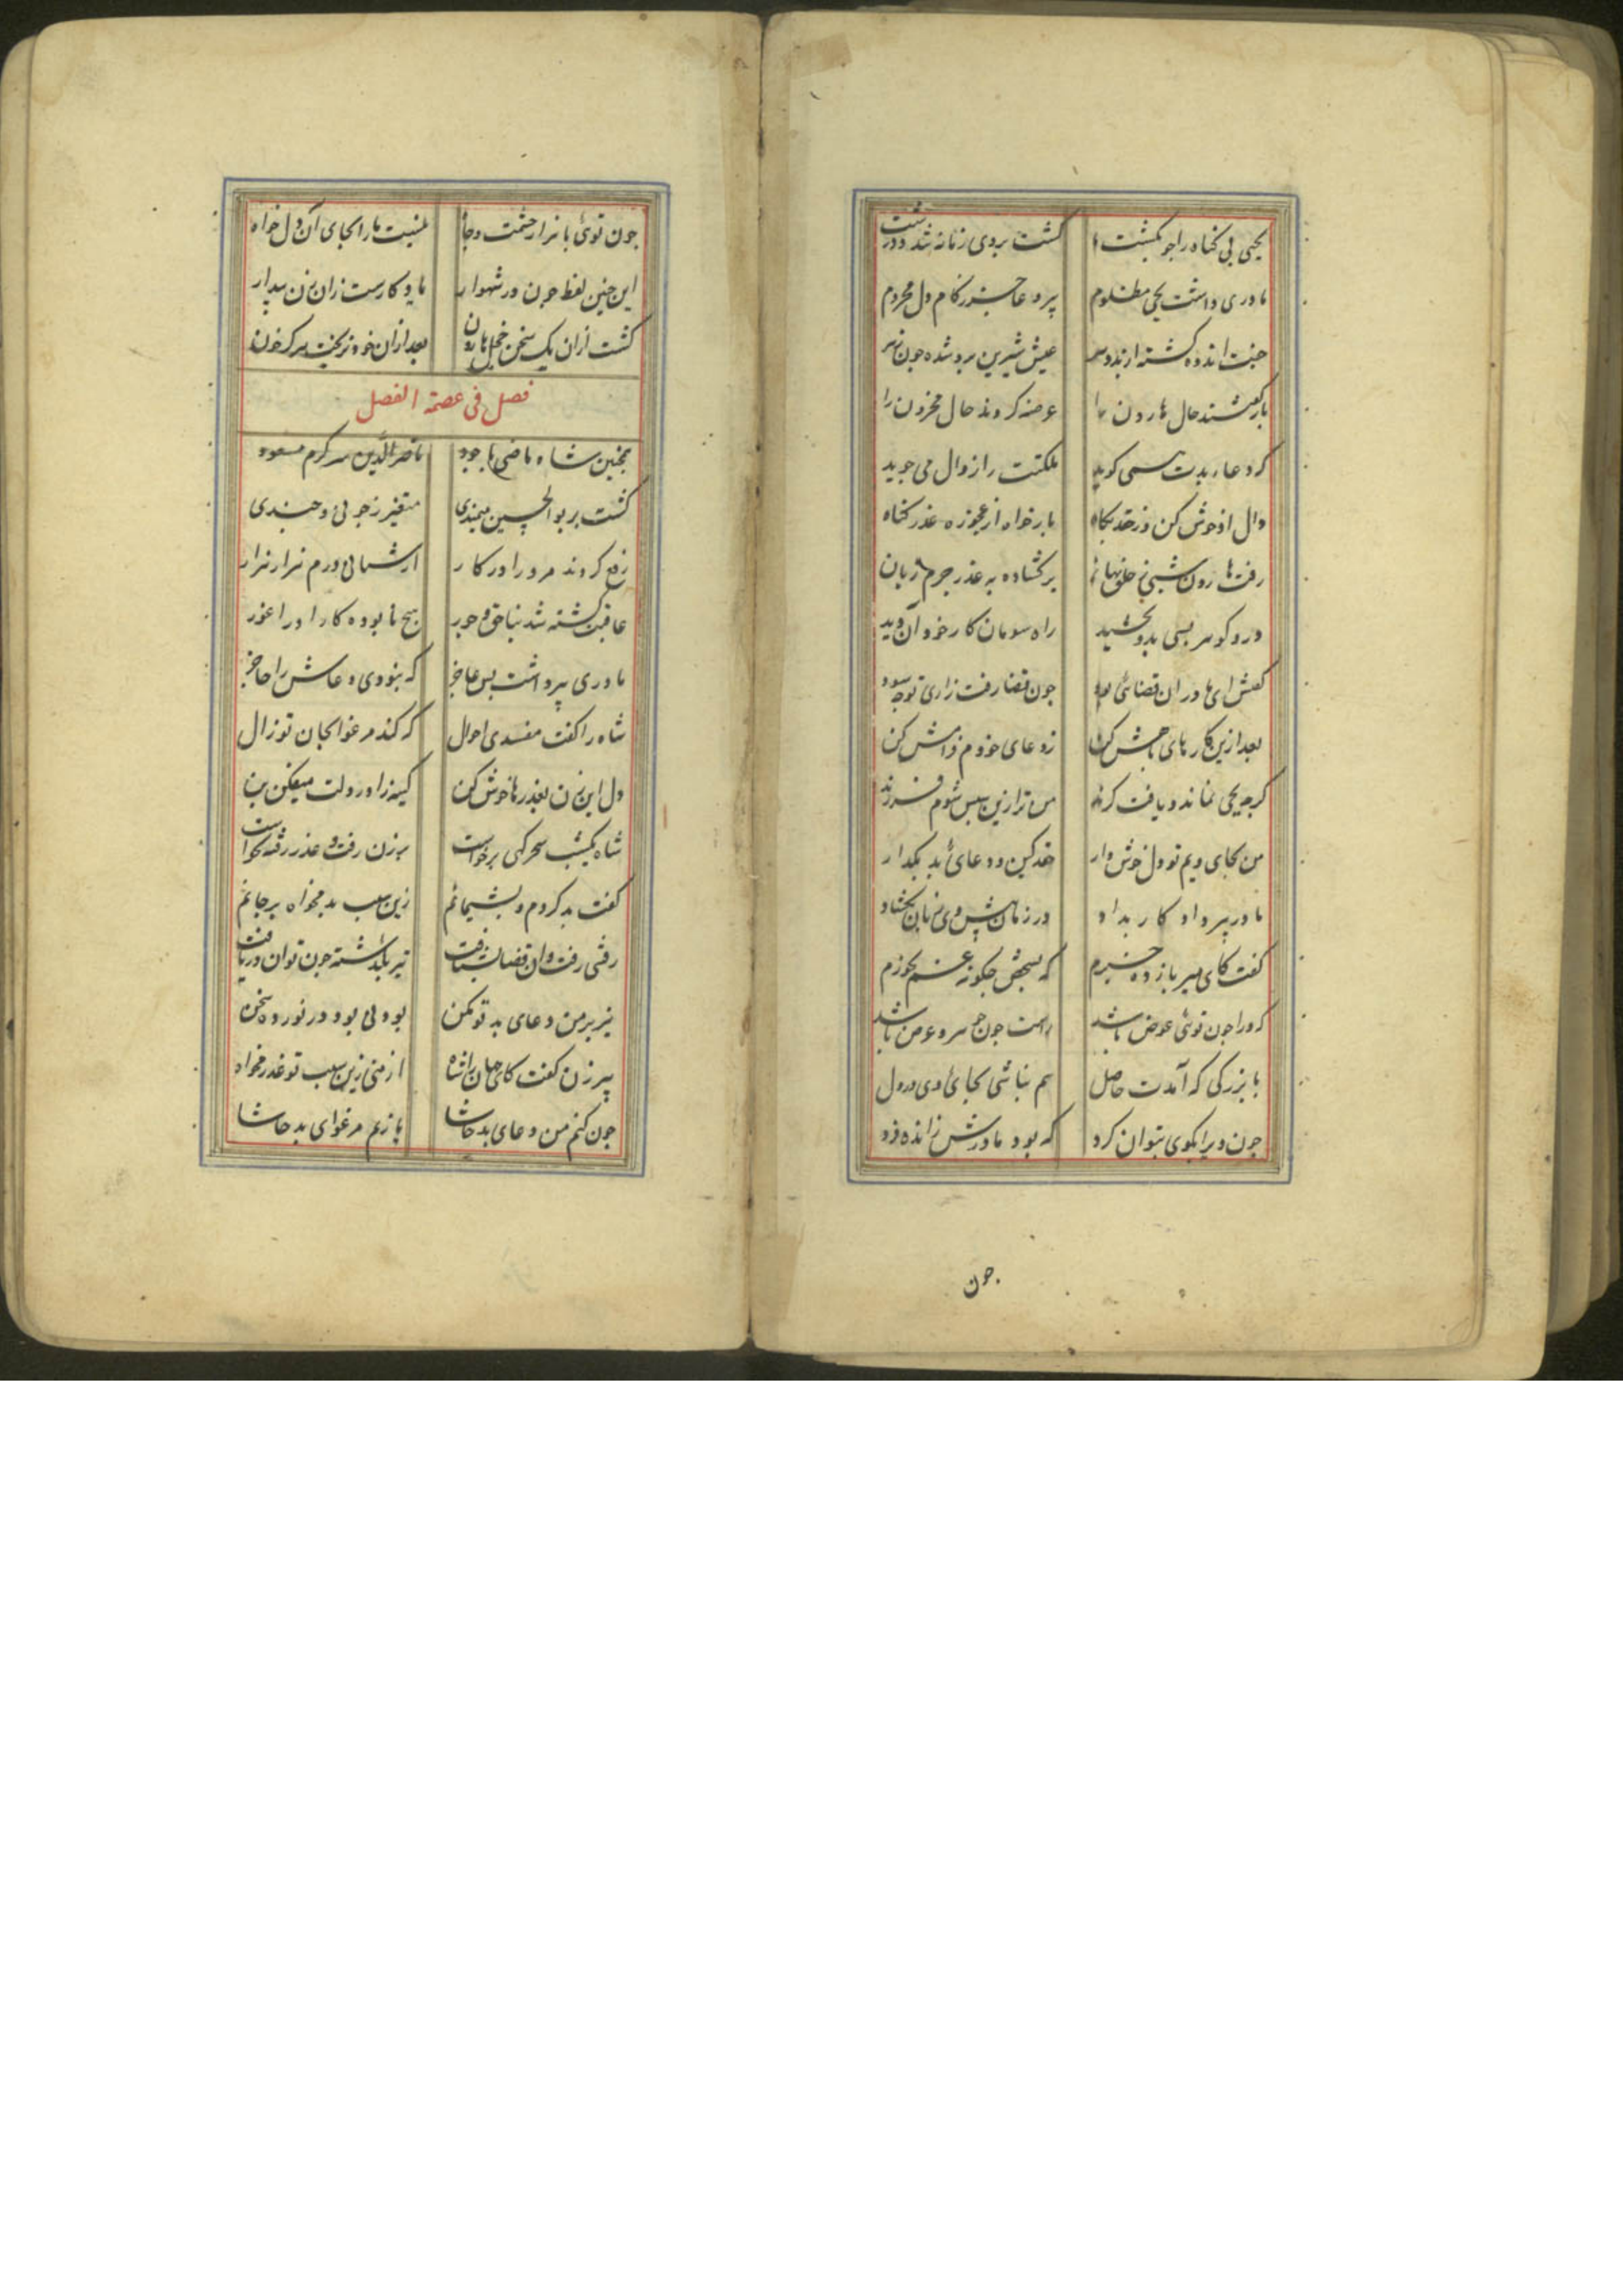 یحیی بی کناه را جو بکشت کشت بروی زمانه شد و درشت
مادری داشت یحیی مظلوم پیر و عاجز ز کام دل محروم
جفت اندوه کشته از بد دهر عیش شیرین برو شده جون زهر
باز کفتند حال هارون را عرضه کردند حال محزون را
کو دعاء بدت همی کوید ملکتت را زوال می جوید
دل او خوش کن و ز حقد بکاه باز خواه از عجوزه عذر کناه
رفت هارون شبی ز خلق نهان بر کشاده به عذر جرم زبان
در و کوهر بسی بدو بخشید راه سومان کار خود آن دید
کفتش ای مادر آن قضائی بود جون قضا رفت زاری تو جه سود
بعد ازین کارهای بخش کن ز دعای خودم فرامش کن
کرجه یحیی نماند و یافت کزند من ترا زین سپس شوم فرزند
من بجای ویم تو دل خوش دار حقد و کین و دعای بد بکذار
مادر پیر داد کار بداد در زمان پیش وی زبان بکشاد
کفت کای میر باز ده خبرم که بمرکش جکونه غم نخورم
کو را جون توئی عوض باشد راست جون جوهر و عرض باشد
با بزرکی که آمدت حاصل هم نباشی بجای وی در دل
جون ویرا بکوی بتوان کرد که بود مادرش ز انده فرد
جون
جون توئی با هزار حشمت و جاه نیست ما را بجای آن دل خواه
این جنین لفظ جون در شهوار مادکارست زان زن بیدار
کشت ازان یک سخن خجل هارون بعد ازان خود نریخت هرکز خون
فصل فی عصمة الفصل
همجنین شاه ماضی با جود ناصر الدین سر کرم مسعود
کشت بر بوالحسین میمندی متغیر ز جونی و جندی
رفع کردند مر ورا در کار ارتشا بی درم هزار هزار
عاقبت کشته شد بناحق و جور هیج نابوده کار او را غور
مادری پیر داشت بس عاجز که نبودی دعاش را حاجز
شاه را کفت مفسدی احوال که کند مرغوا بجان تو زال
دل این زن بعذرها خوش کن کینه زا در دلت میفکن بن
شاه یکشب سحرکهی برخاست بر زن رفت و عذر رفته بخواست
کفت بد کردم و پشیمانم زین سبب بد مخواه بر جانم
رفتنی رفت وان قضا بشتافت تیر بکذشته جون توان دریافت
نیز بر من دعای بد تو مکن بود نی بود در نورد سخن
پیر زن کفت کای جهان را شاه از منی زین سبب تو عذر مخواه
جون کنم من دعای بد حاشا یا زنم مرغوای بد حاشا